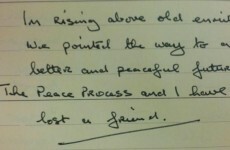 In rising above old enmi
We pointed the way to a
better and peaceful futur
The Peace Process and I have
lost a friend.